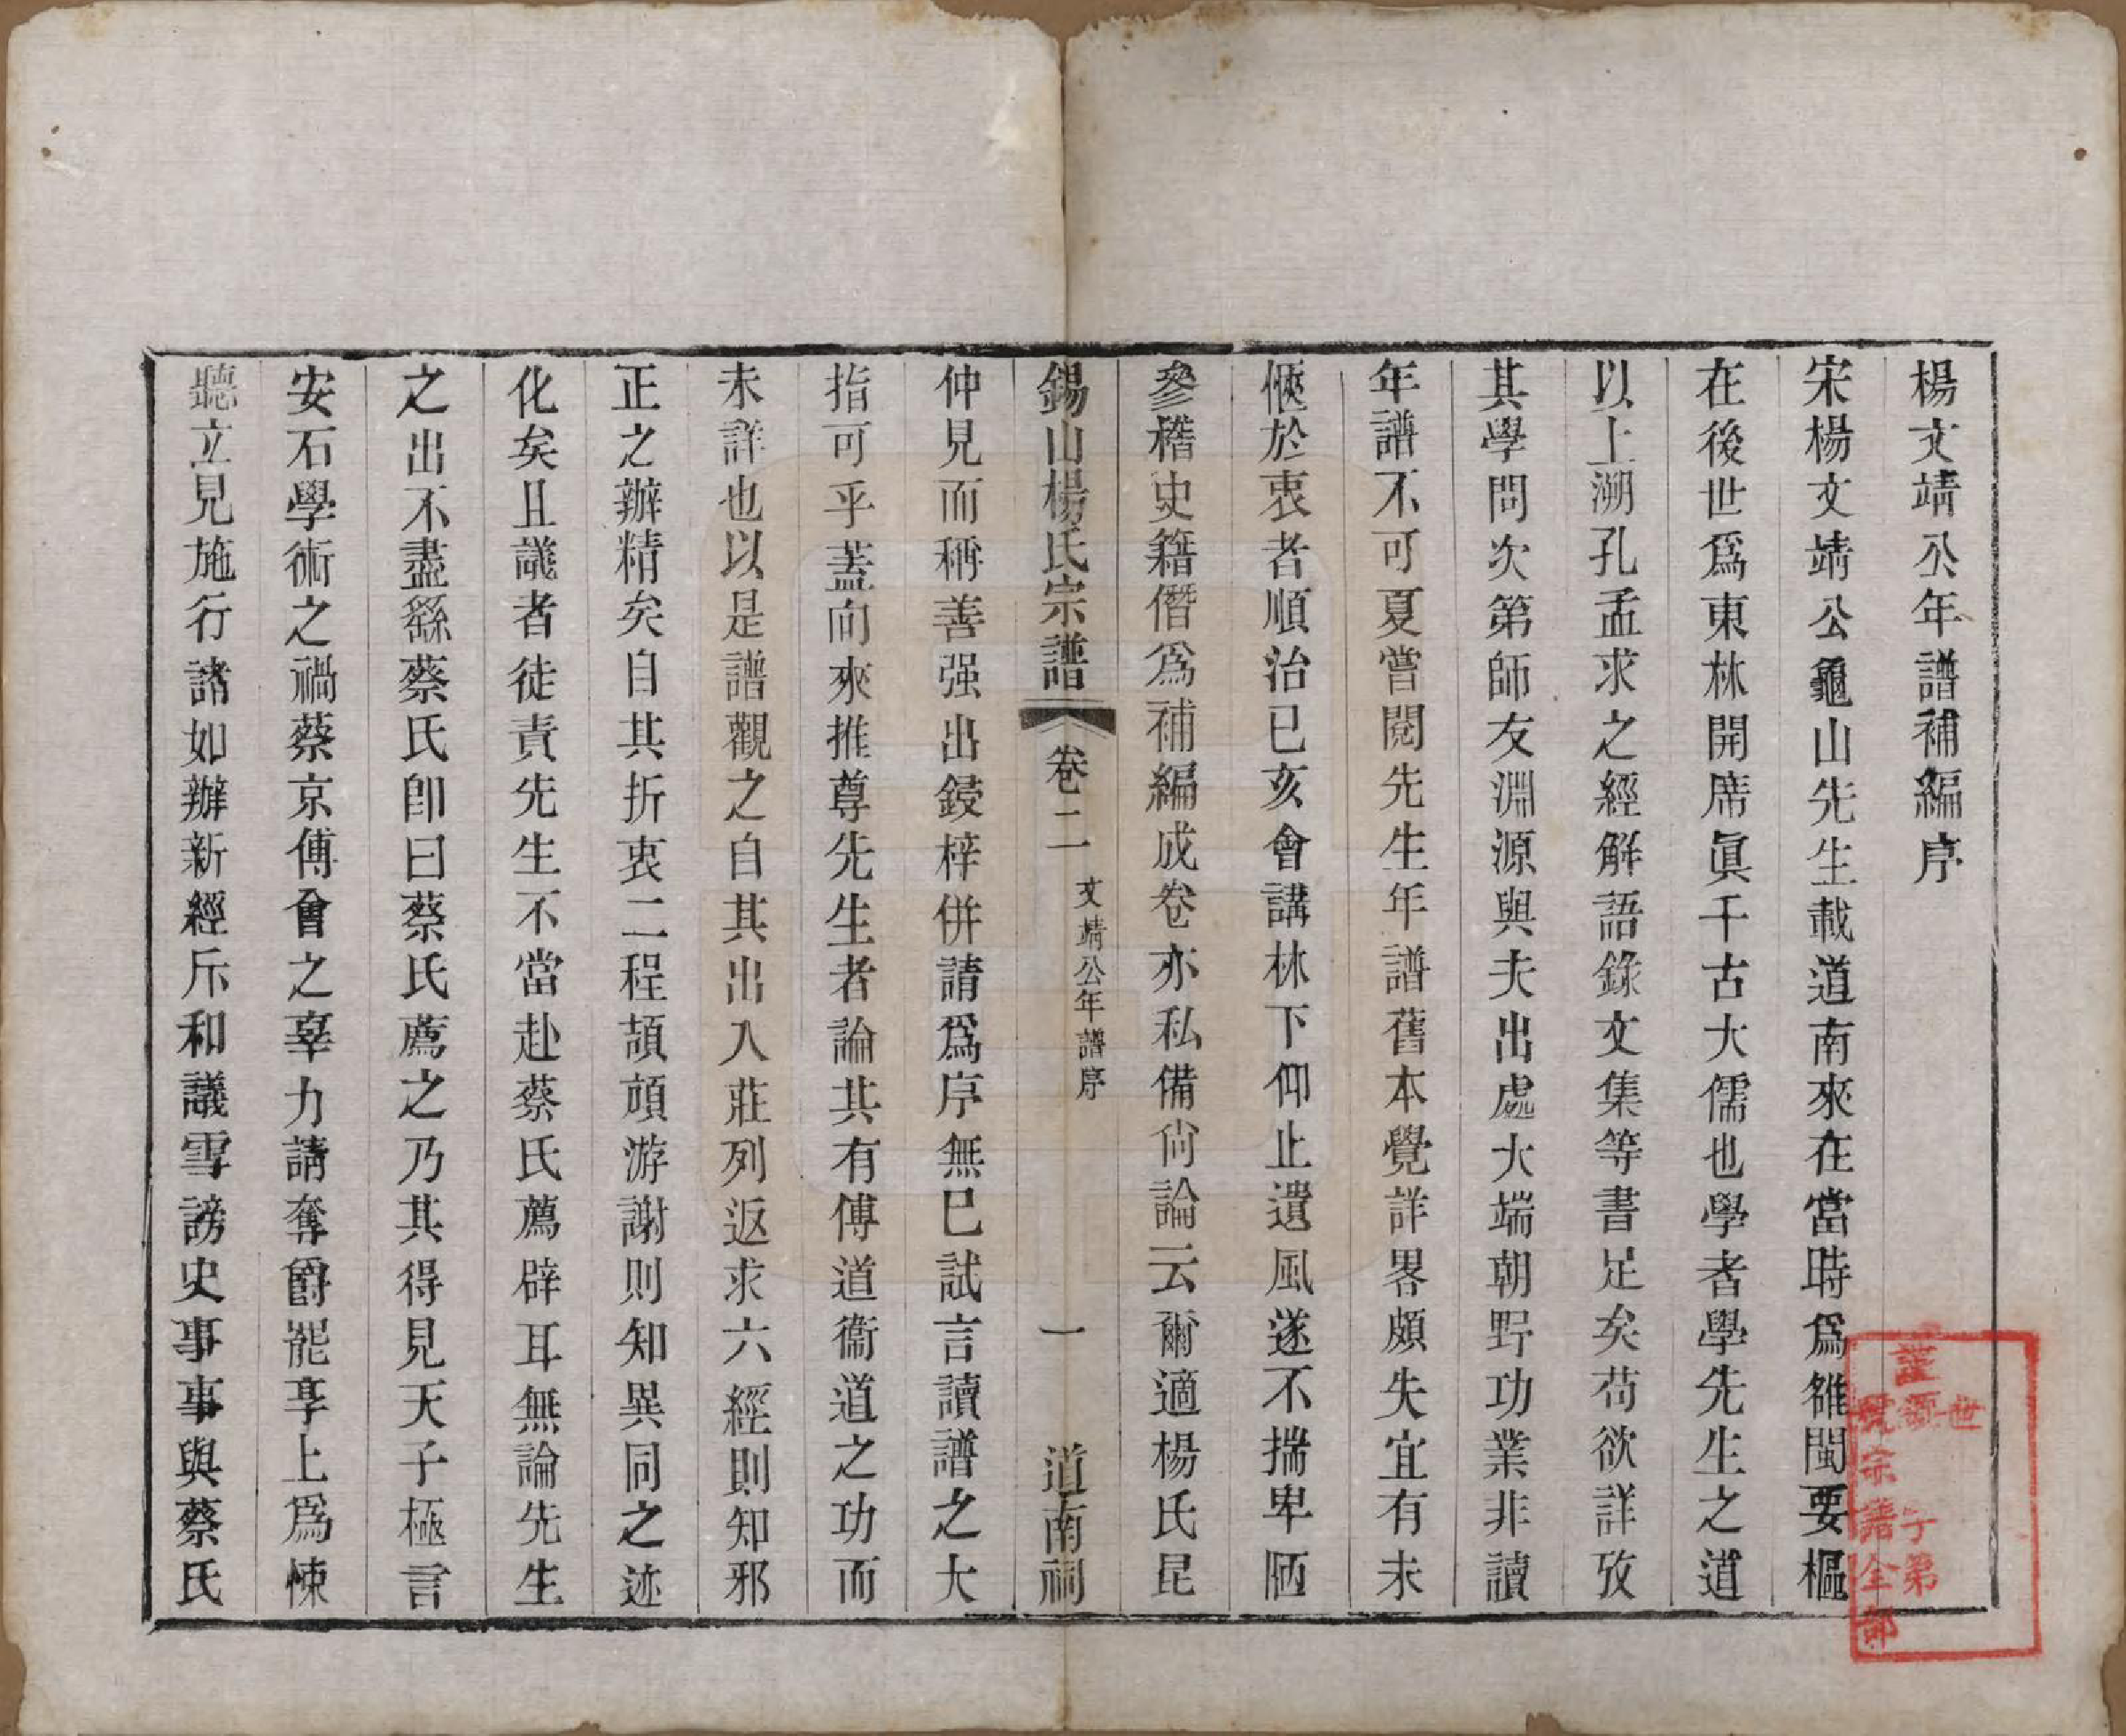 楊文靖公年譜補編序
宋楊文靖公龜山先生載道南來在當時爲雒閩要樞
在後世爲東林開席眞千古大儒也學者學先生之道
以上溯孔孟求之經解語錄文集等書足矣苟欲詳攷
其學問次第師友淵源與夫出處大端朝野功業非讀
年譜不可夏嘗閱先生年譜舊本覺詳畧頗失宜有未
愜於衷者順治己亥會講林下仰止遺風遂不揣卑陋
參稽史籍僭爲補編成卷亦私備尙論云爾適楊氏昆
錫山楊氏宗譜 卷二 文靖公年譜序 一 道南祠
仲見而稱善强出鋟梓併請爲序無已試言讀譜之大
指可乎蓋向來推尊先生者論其有傳道衞道之功而
未詳也以是譜觀之自其出入莊列返求六經則知邪
正之辦精矣自其折衷二程頡頏游謝則知異同之迹
化矣且議者徒責先生不當赴蔡氏薦辟耳無論先生
之出不盡繇蔡氏卽曰蔡氏薦之乃其得見天子極言
安石學術之禍蔡京傅會之辜力請奪爵罷享上爲悚
聽立見施行諸如辦新經斥和議雪謗史事事與蔡氏
世
子第
宗譜全部